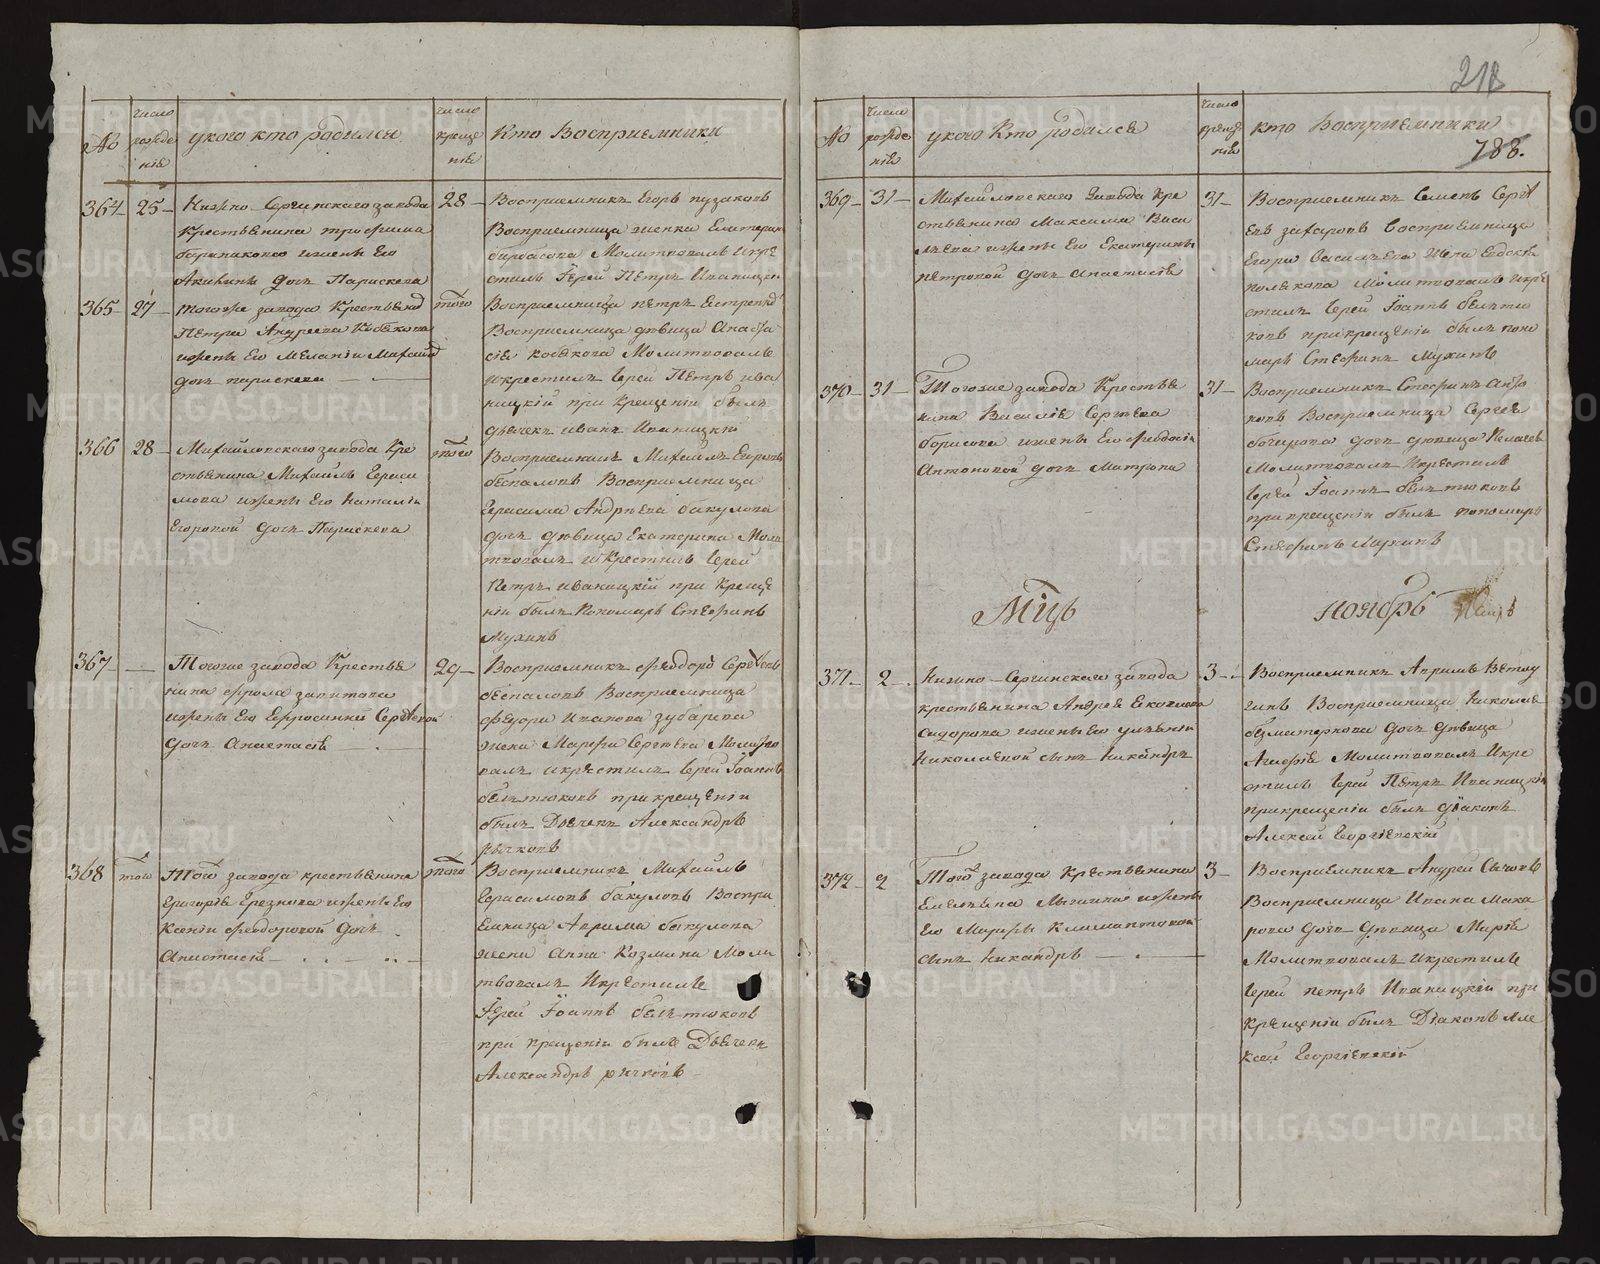 218
188.
№
число рожде ніѣ
у кого кто родился
число креще ніѣ
Кто Восприемники
364 25
Нижно Сергинскаго завода
Крестьянина трофима
ижены Его
дочь Парискева
28
Восприемникъ Егоръ пузаковъ
Восприемница женка Екатерин
Молитвовалъ Икре
стилъ Іерей Петръ Иваницкі
365 27
тогоже завода Крестьянин
Петра Андреева Кобякова
ижены Его Меланіи Михаил
дочь парискева
того
Восприемница петръ
Восприемница девица Анаста
сіѣ кобякова Молитвовалъ
икрестилъ Іерей Петръ ива
ницкій при Крещеніи былъ
дьячекъ иванъ Иваницкій
366 28
Михайловскаго завода Кре
стьянина Михаилъ Гераси
мова ижены Его наталіи
Егоровой Дочь Парискева
того
Восприемникъ Михаилъ Егоровъ
беспаловъ Восприемница
Герасима Андрѣева бакулова
дочь дѣвица Екатерина Моли
твовалъ иКрестилъ Іерей
Петръ иваницкій при Креще
ніи былъ Пономарь Стефанъ
Мухинъ
367
Тогоже завода Крестья
нина фрола
ижены Его Ефросиніи Сергеевой
дочь Анастасіѣ
29
Восприемникъ Феодоръ Сергеевъ
беспаловъ Восприемница
федора Иванова зубарева
жена Марфа Сергѣева Молитво
валъ икрестилъ Іерей Іоаннъ
бѣлѣтюковъ прикрещеніи
былъ Дьячекъ Александръ
рычковъ
368 того
Того завода крестьянина
Григоріѣ ижены Его
Ксеніи Феодоровой дочь
Анастасіѣ
того
Восприемникъ Михаилъ
Герасимовъ бакуловъ Воспри
емница Аврама бакулова
жена Анна Козмина Моли
твовалъ Икрестилъ
Іерей Іоаннъ бѣлѣтюковъ
при крещеніи былъ Дьячекъ
Александръ рычковъ
№
Число рожде ніѣ
у кого Кто родился
Число креще ніѣ
кто Восприемники
369 31
Михайловскаго Завода Кре
стьянина Максима Васи
лѣва ижены Его Екатерины
петровой дочь Анастасіѣ
31
Восприемникъ Семенъ Серге
евъ захаровъ Восприемница
Егора Василѣва жена Евдокіѣ
Молитвовалъ Икре
стилъ Іерей Іоаннъ бѣлѣтю
ковъ прикрещеніи былъ поно
марь Стефанъ Мухинъ
370 31
Тогоже завода Крестья
нина Василіѣ Сергѣева
борисова ижены Его Феодосіи
Антоновой дочь Матрона
31
Восприемникъ Стефанъ
ковъ Восприемница Сергея
дочь дѣвица Пелагеѣ
Молитвовалъ Икрестилъ
Іерей Іоаннъ бѣлѣтюковъ
прикрещеніи былъ пономарь
Стефанъ Мухинъ
Мцъ ноябрь
371 2
Нижно-Сергинскаго завода
крестьянина Андрея
Сидорова ижены Его улѣяніи
Николаевой сынъ Никандръ
3
Восприемникъ Аврамъ
Восприемница Николая
дочь девица
Агафіѣ Молитвовалъ Икре
стилъ Іерей Петръ Иваницкій
прикрещеніи былъ дїаконъ
Алексей Георгіевскій
372 2
Того завода Крестьянина
Емелѣяна ижены
Его Марфы Климантовой
сынъ Никандръ
3
Восприемникъ Андрей Сычовъ
Восприемница Ивана Мака
рова дочь девица Маріѣ
Молитвовалъ Икрестилъ
Іерей петръ Иваницкій при
Крещеніи былъ Діаконъ Але
ксей Георгіевскій